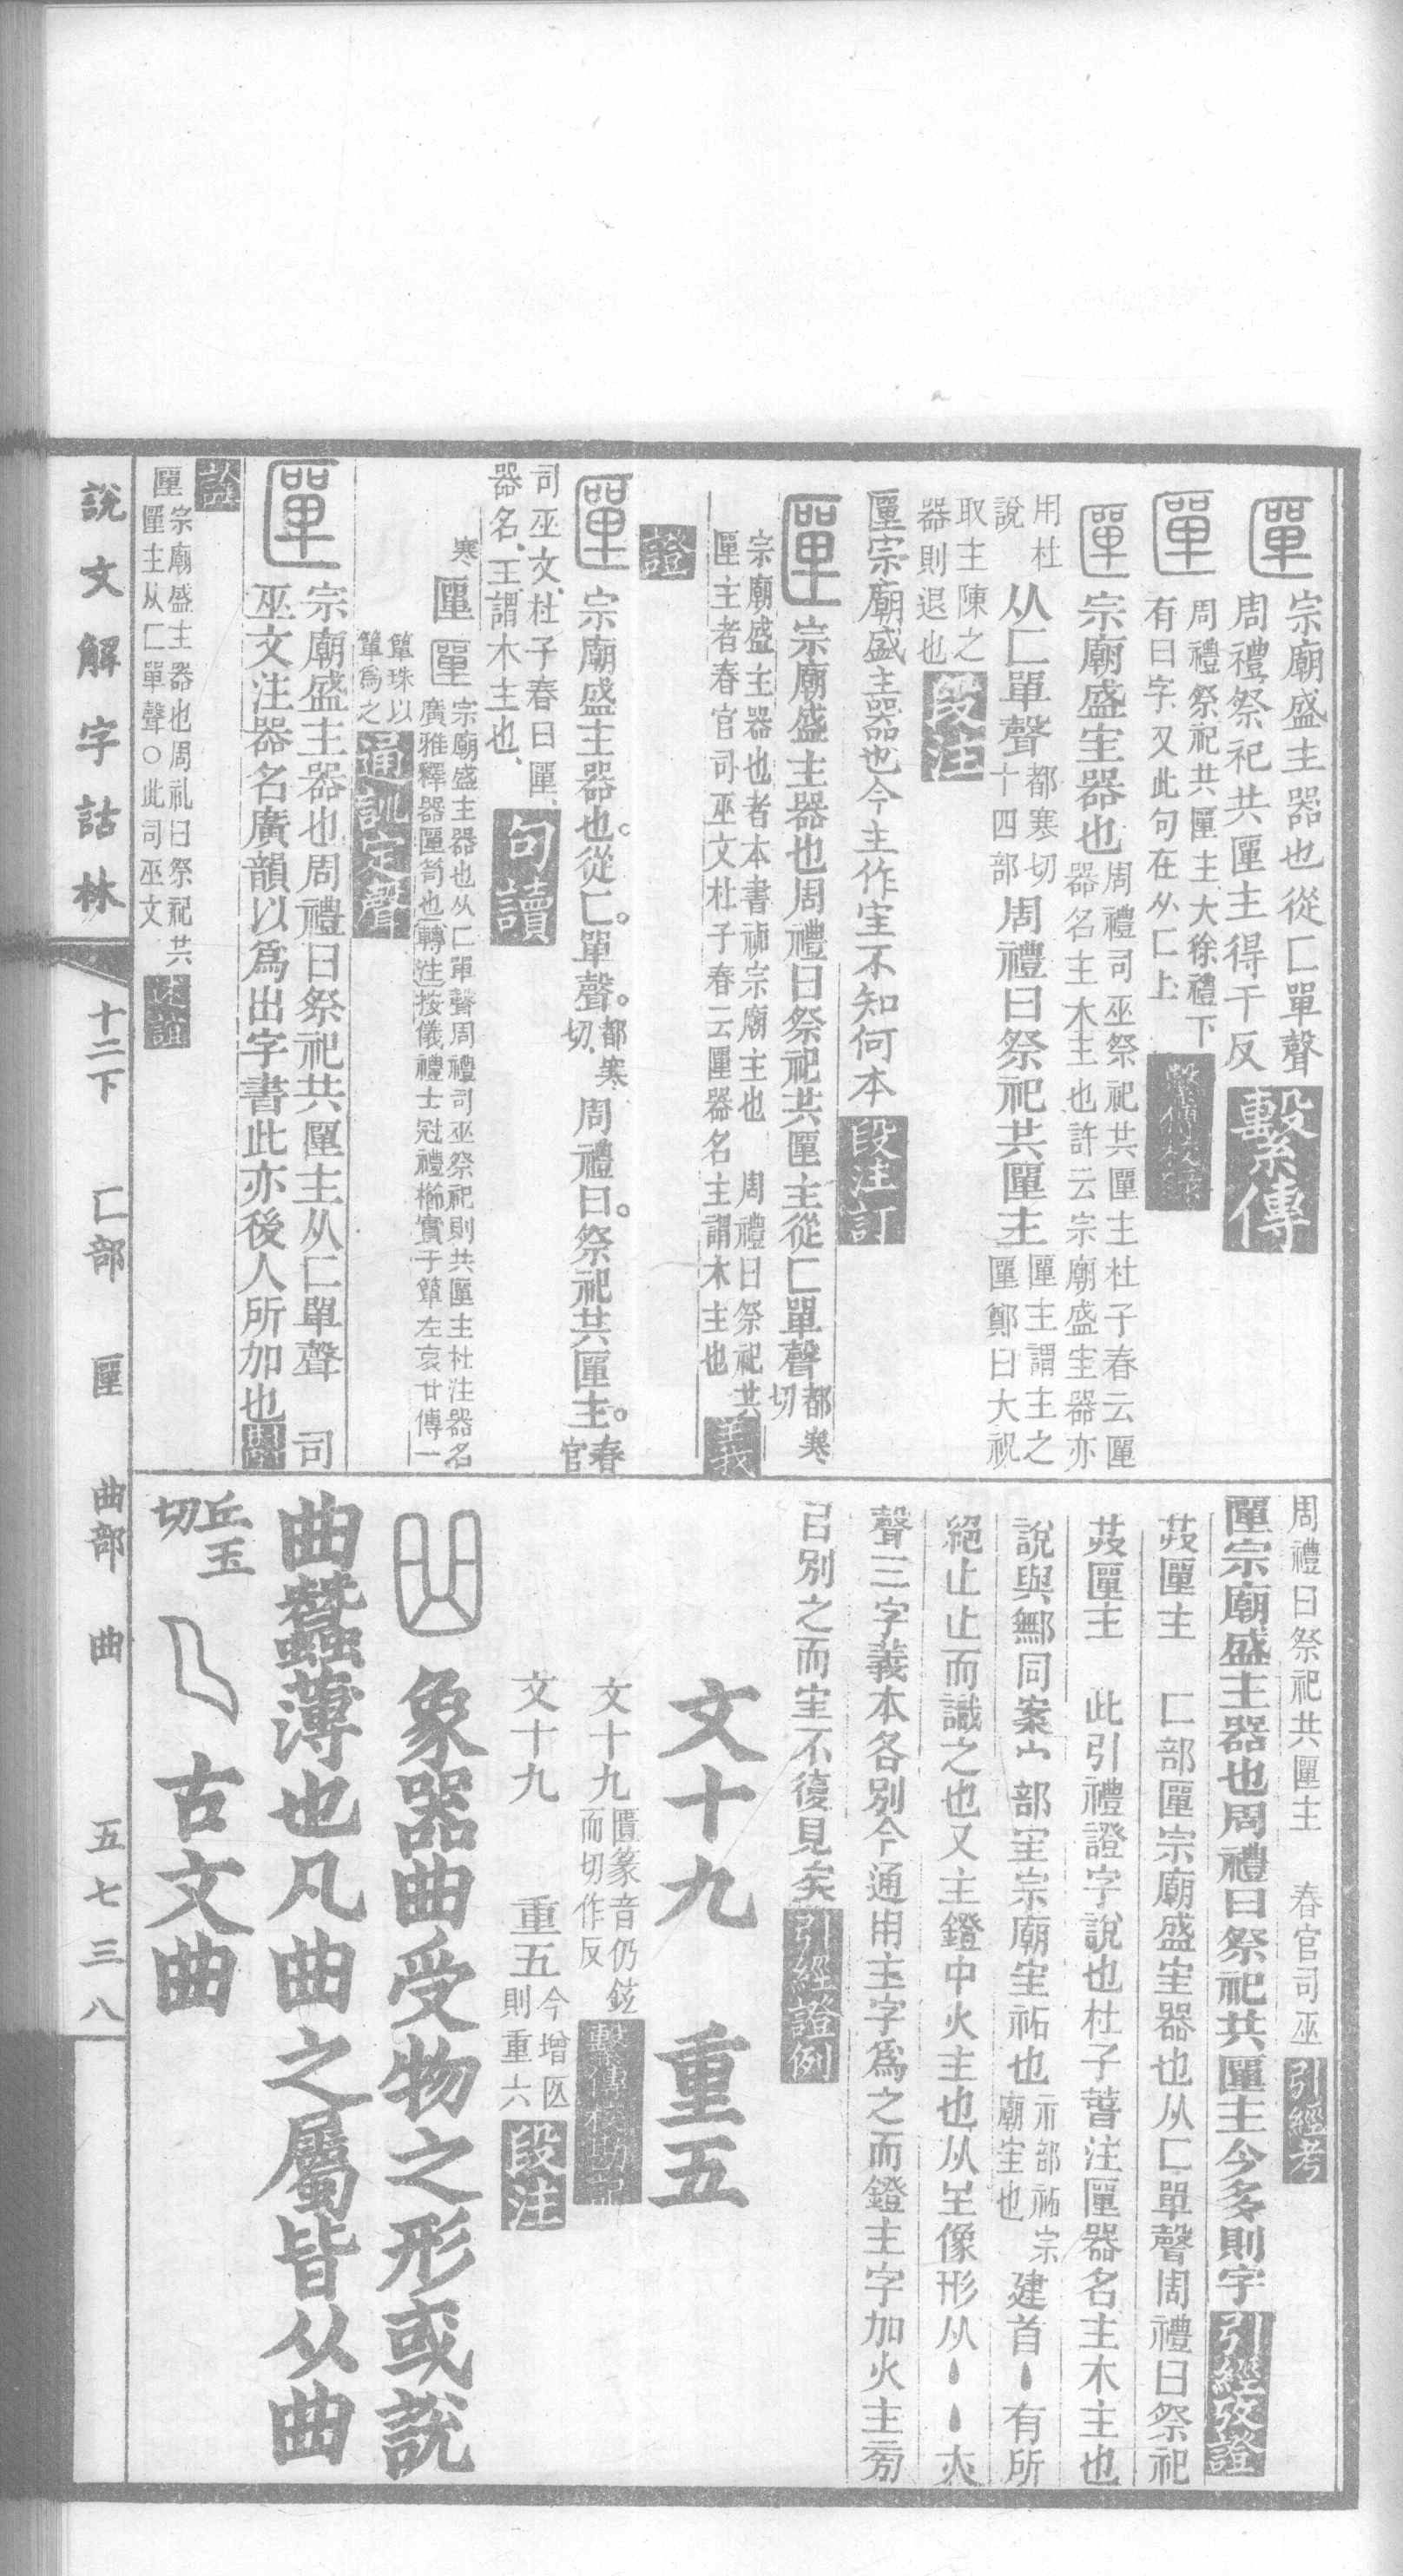 匰 宗廟盛主器也從匚單聲
周禮祭祀共匰主得干反 繫傳
匰 周禮祭祀共匰主大徐禮下
有曰字又此句在从匚上
匰 宗廟盛宔器也 周禮司巫祭祀共匰主杜子春云匰
器名主木主也許云宗廟盛宔器亦
用杜
說 从匚單聲 都寒切
十四部 周禮曰祭祀共匰主 匰主謂主之
匰鄭曰大祝
取主陳之
器則退也 段注
匰宗廟盛主器也今主作宔不知何本 段注訂
匰 宗廟盛主器也周禮曰祭祀共匰主從匚單聲 都寒
切
宗廟盛主器也者本書祏宗廟主也 周禮曰祭祀共
匰主者春官司巫文杜子春云匰器名主謂木主也 義
證
匰 宗廟盛主器也。從匚。單聲。都寒
切 周禮曰。祭祀共匰主。春
官
司巫文、杜子春曰匰、
器名、主、謂木主也、 句讀
寒 匰 匰 宗廟盛主器也从匚單聲周禮司巫祭祀則共匰主杜注器名
廣雅釋器匰笥也轉注按儀禮士冠禮櫛實于簞左哀廿傳一
簞珠以
簞為之 通訓定聲
匰 宗廟盛主器也周禮曰祭祀共匰主从匚單聲 司
巫文注器名廣韻以為出字書此亦後人所加也
匰 宗廟盛主器也周礼曰祭祀共
匰主从匚單聲○此司巫文
周禮曰祭祀共匰主 春官司巫 引經考
匰宗廟盛主器也周禮曰祭祀共匰主今多則字 引經攷證
匰主 匚部匰宗廟盛宔器也从匚單聲周禮曰祭祀
匰主 此引禮證字說也杜子春注匰器名主木主也
說與鄦同案宀部宔宗廟宔祏也 示部祏宗
廟宔也 建首丶有所
絕止丶而識之也又主鐙中火主也从呈像形从丶丶
聲三字義本各別今通用主字為之而鐙主字加火主旁
已別之而宔不復見矣 引經證例
文十九 重五
文十九 匫篆音仍鉉
而切作反 繫傳校勘記
文十九 重五 今增匛
則重六 段注
曲 象器曲受物之形或說
曲蠶薄也凡曲之屬皆从曲
丘玉
切 古文曲
說文解字詁林 十二下 匚部 匰 曲部 曲 五七三八